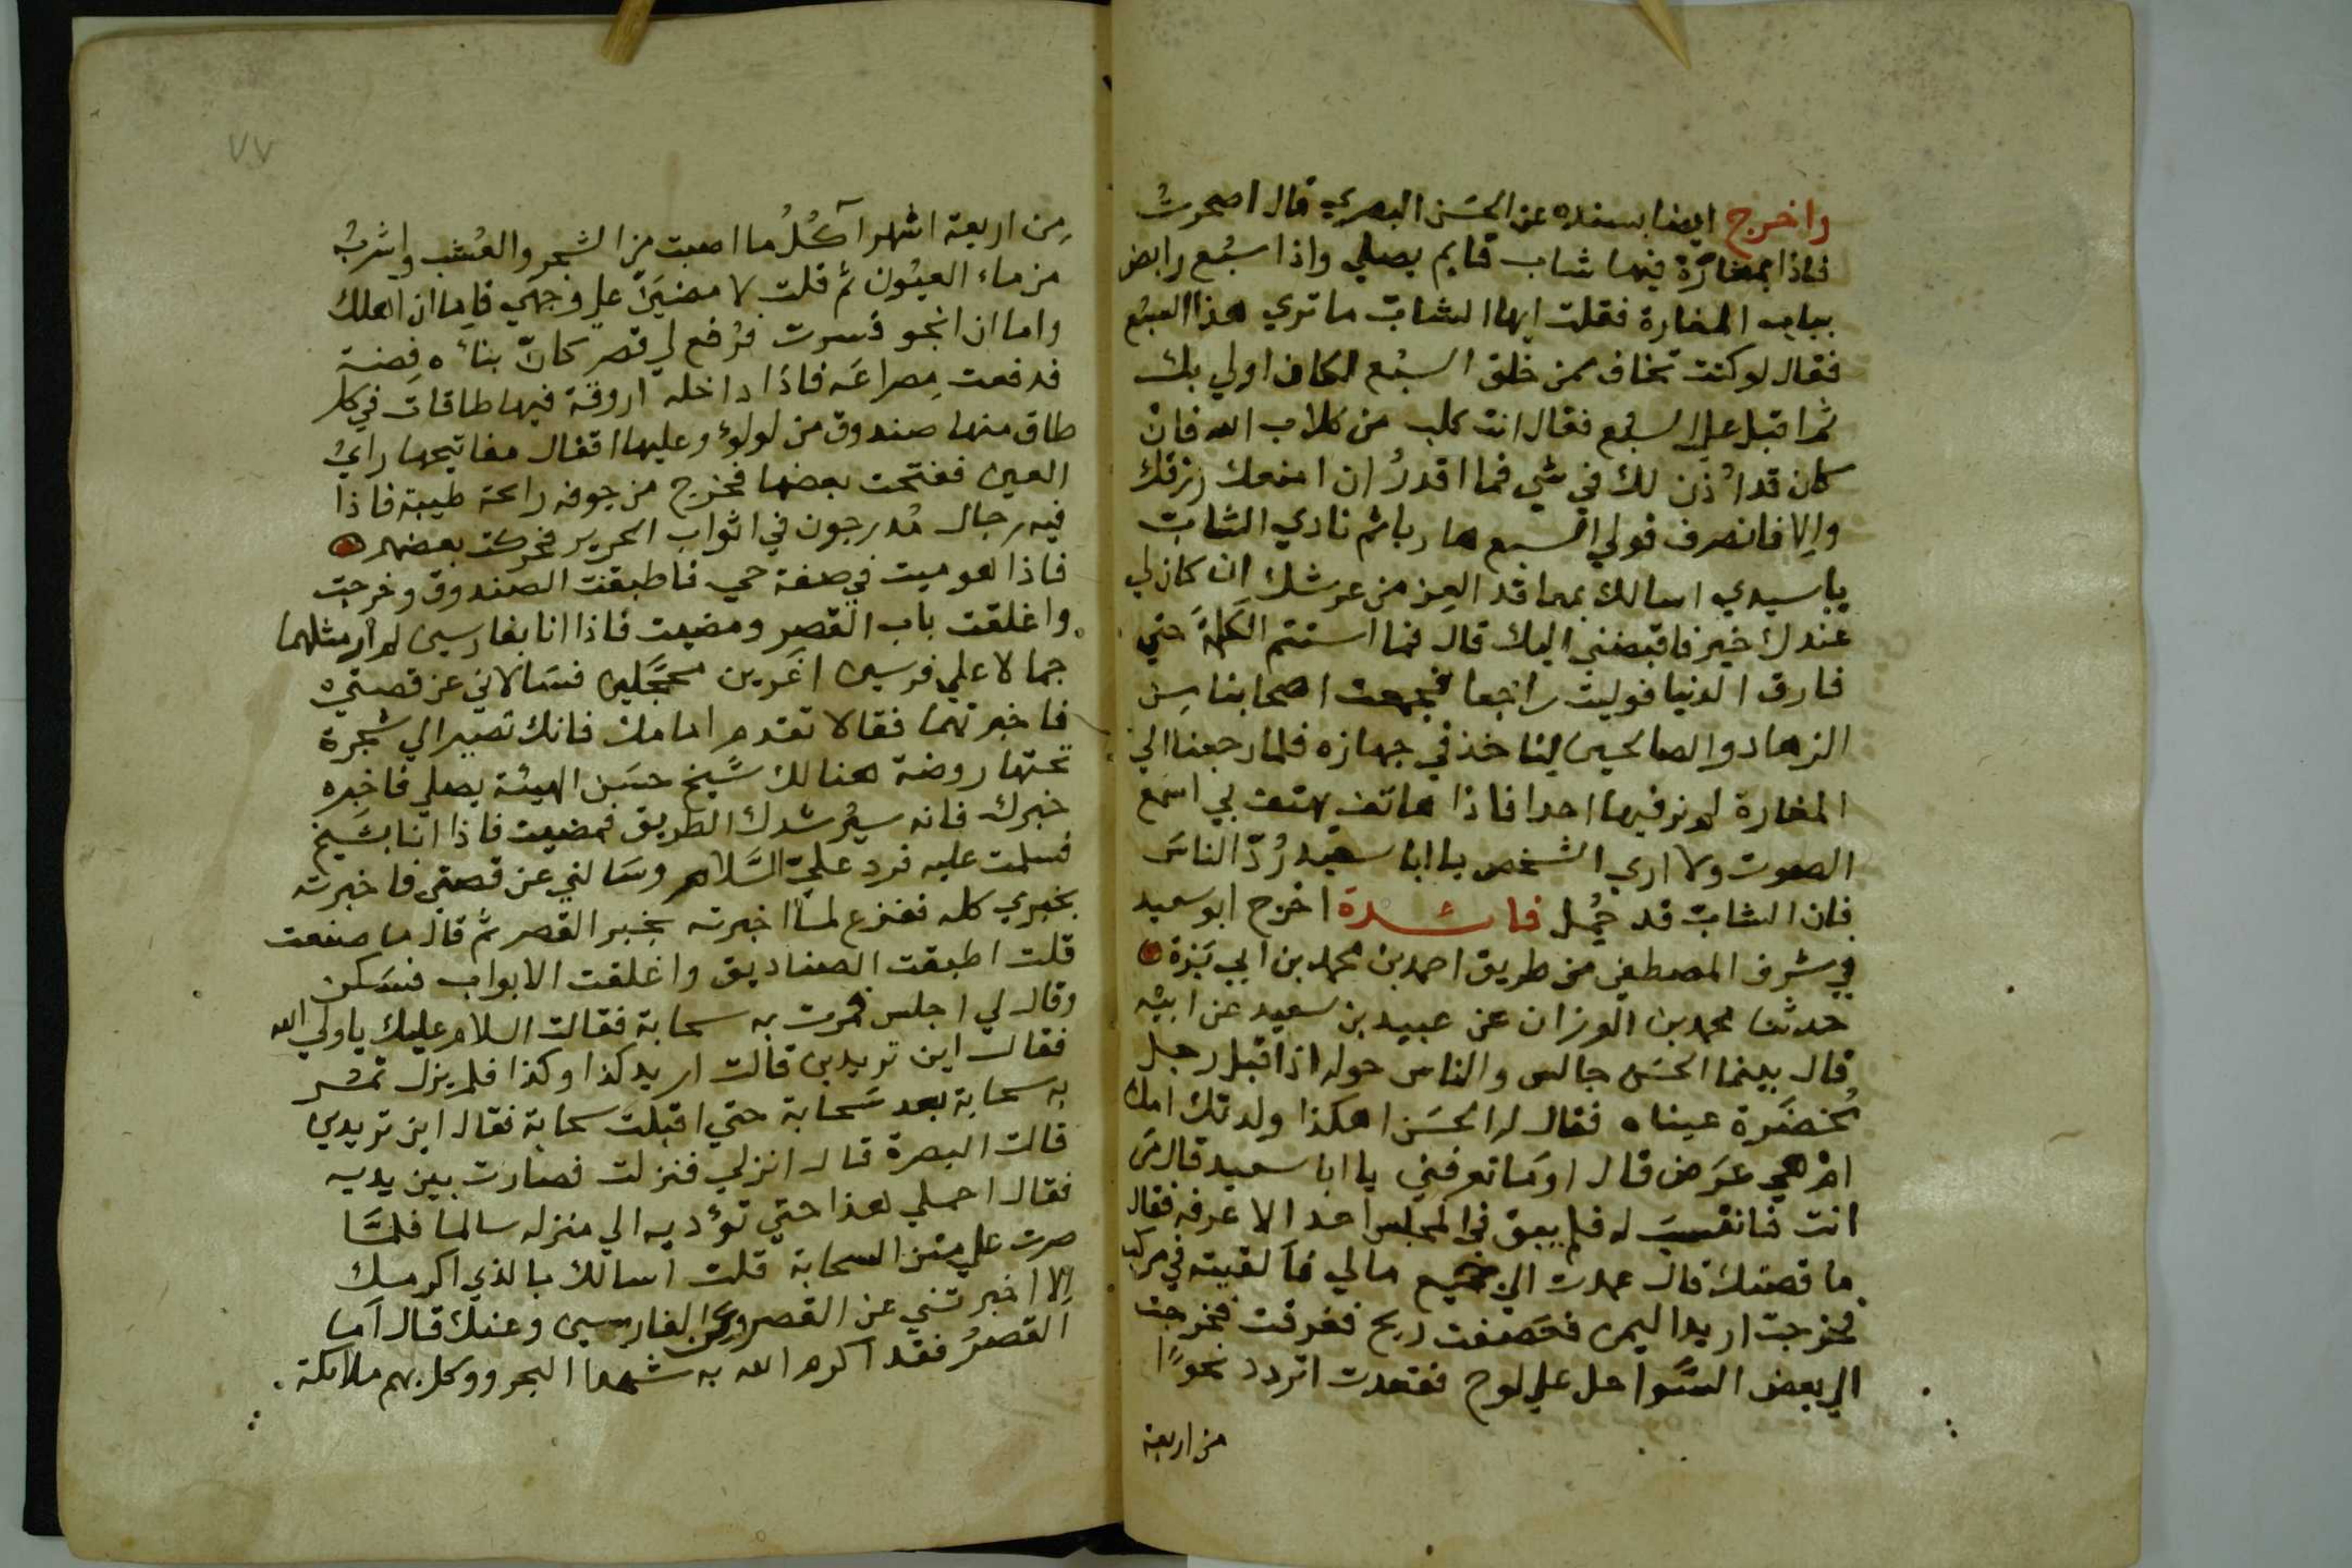 واخرج ايضا بسنده عن الحسَن البصري قال اصحرتُ
فاذا بمغارة فيها شاب قايم يصلي واذا سبُع رابض
بباب المغارة فقلت ايها الشابّ ما تري هذا السبُع
فقال لو كنت تخاف ممن خلق السبُع لكان اولي بك
ثم اقبل علي السبُع فقال انت كلب من كلاب الله فان
كان قد اُذن لك في شي فما اقدرُ ان امنعك رزقك
والا فانصرف فولي السبع هاربا ثم نادي الشابّ
يا سيدي اسالك بمعاقد العِز من عرشك ان كان لي
عندك خير فاقبضني اليك قال فما استتم الكلمةَ حتي
فارق الدنيا فوليت راجعا فجمعت اصحابنا من
الزهاد والصالحين لناخذ في جهازه فلما رجعنا الي
المغارة لم نر فيها احدا فاذا هاتف يهتف بي اسمَع
الصوت ولا اري الشخص يا ابا سعيد رُدّ الناسَ
فان الشابّ قد حُمِل فائدة اخرج ابو سعيد
في شرف المصطفي من طريق احمد بن محمد بن ابي بَزة
حدثنا محمد بن الوزان عن عبيد بن سعيد عن ابيه
قال بينما الحسَن جالس والناس حوله اذ اقبل رجل
مُخضَرة عيناه فقال له الحسَن اهكذا ولدتك امك
ام هي عرَض قال اوَما تعرفني يا ابا سعيد قال مَن
انت فانتسبَ له فلم يبق في المجلس احد الا عرفه فقال
ما قصتك قال عمدت الي جميع مالي فالقيته في مركب
فخرجت اريد اليمن فعَصفت ريح فغرقت فخرجت
الي بعض السَّواحل علي لوح فقعدت اتردد نحوًا
من اربعة
من اربعة اشهر آكُلُ ما اصبت من الشجر والعُشب واشربُ
من ماء العيُون ثم قلت لامضيَنّ علي وجهي فاما ان اهلك
واما ان انجو فسرت فرُفع لي قصر كانّ بناءه فضة
فدفعت مِصراعَه فاذا داخله اروقة فيها طاقات في كل
طاق منها صندوق من لولؤ وعليها اقفال مفاتيحها رايَ
العين ففتحت بعضها فخرج من جوفه رائحة طيبة فاذا
فيه رجال مُدرجون في اثواب الحرير فحركت بعضهم
فاذا هو ميت في صفة حي فاطبقت الصندوق وخرجت
واغلقت باب القصر ومضيت فاذا انا بفارسين لم ار مثلهما
جمالا علي فرسين اغرين محجَّلين فسَالاني عن قصتي
فاخبرتهما فقالا تقدم امامك فانك تصير الي شجرة
تحتها روضة هنالك شيخ حسَن الهيئة يصلي فاخبِره
خبرك فانه سيُرشدك الطريق فمضيت فاذا انا بشيخ
فسلمت عليه فرد عليّ السَّلام وسَالني عن قصتي فاخبرته
بخبري كله ففزع لما اخبرته بخبر القصر ثم قال ما صنعت
قلت اطبقت الصناديق واغلقت الابواب فسَكن
وقال لي اجلس فمرت به سحابة فقالت السلام عليك يا ولي الله
فقال اين تريدين قالت اريد كذا وكذا فلم يزل تمر
به سحابة بعد سَحابة حتي اقبلت سحابة فقال اين تريدين
قالت البصرة قال انزلي فنزلت فصارت بين يديه
فقال احملي هذا حتي تؤديه الي منزله سالما فلمَّا
صرت علي متن السحابة قلت اسالك بالذي اكرمك
الا اخبرتني عن القصر وعن الفارسين وعنك قال اما
القصرُ فقد اكرم الله به شهدا البحر ووكل بهم ملائكة